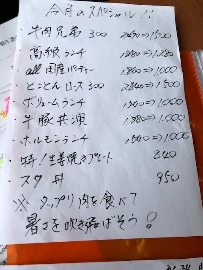 今月のスペシャル!!
・牛肉兄弟 300 ⇒1500
・高級ランチ ⇒1280
・all国産 ⇒1000
・とことんロース300 ⇒1500
・ボリュームランチ ⇒1000
・牛豚共演 ⇒1000
・ホルモンランチ ⇒1000
・特!生姜焼きプレート 840
・スタ丼 950
※タップリ肉を食べて
暑さを吹き飛ばそう!